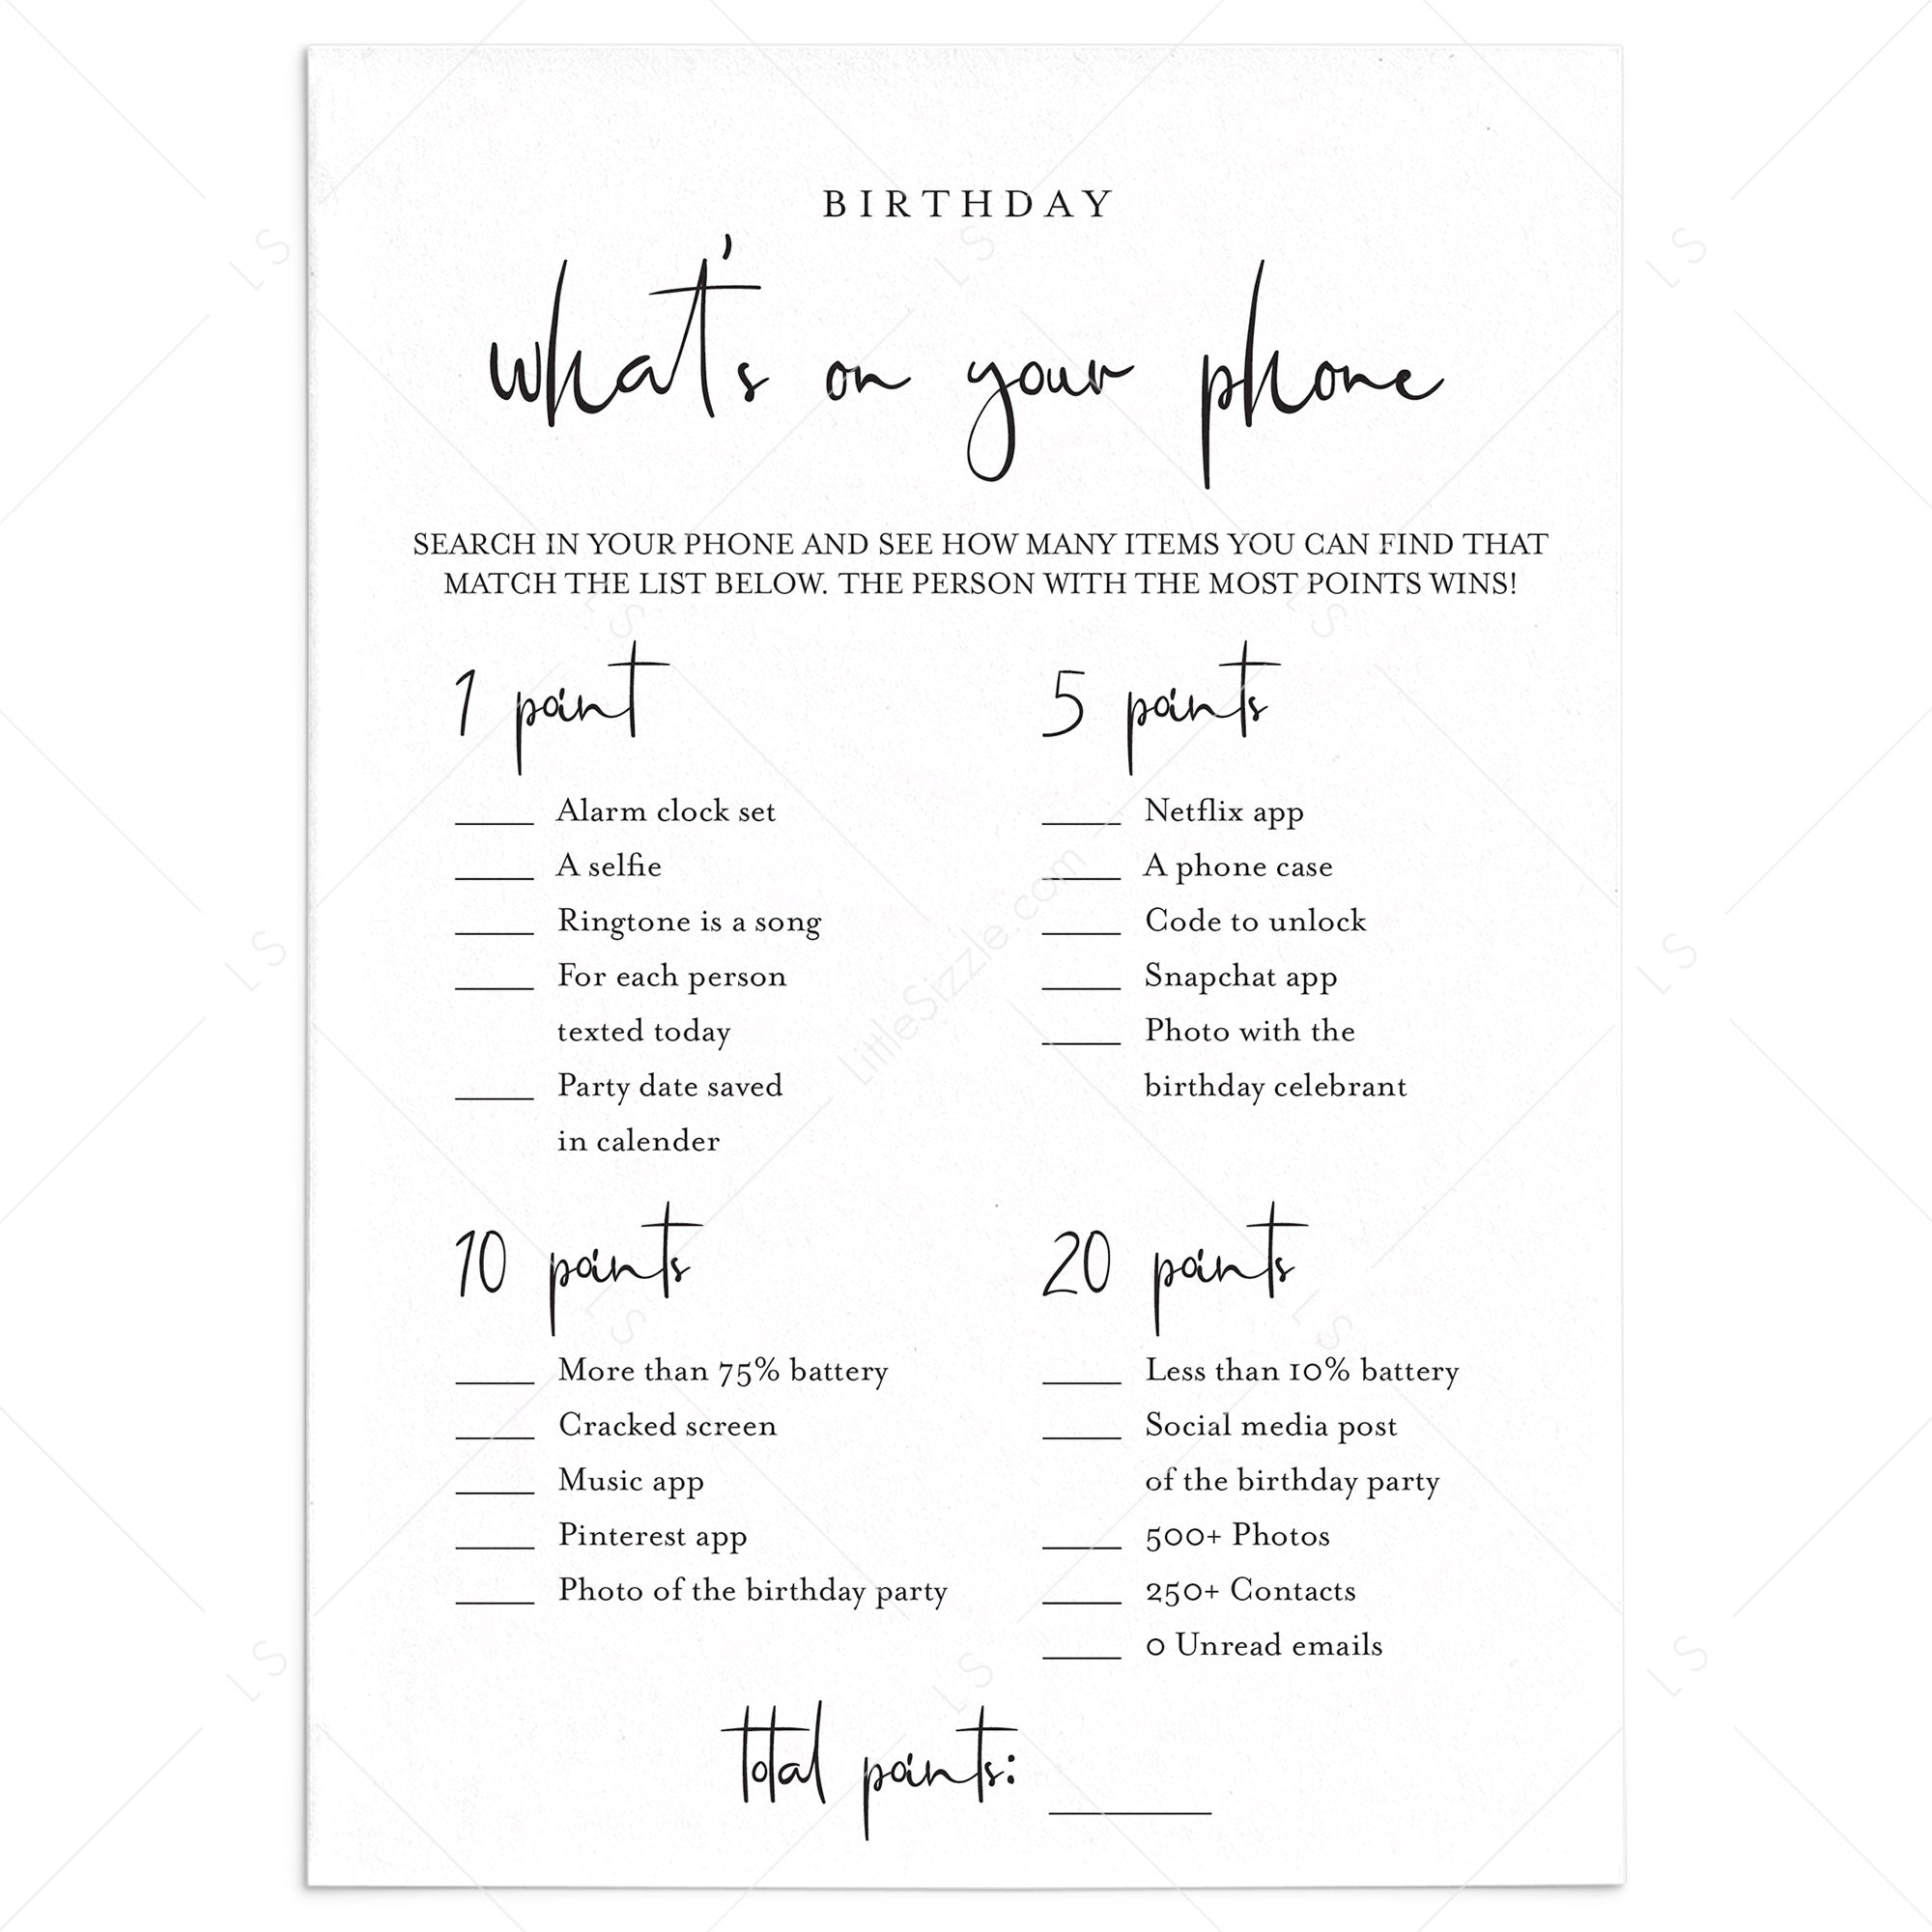 BIRTHDAY
what's on your phone
SEARCH IN YOUR PHONE AND SEE HOW MANY ITEMS YOU CAN FIND THAT
MATCH THE LIST BELOW. THE PERSON WITH THE MOST POINTS WINS!
1 point
Alarm clock set
A selfie
Ringtone is a song
For each person
texted today
Party date saved
in calender
5 points
Netflix app
A phone case
Code to unlock
Snapchat app
Photo with the
birthday celebrant
10 points
More than 75% battery
Cracked screen
Music app
Pinterest app
Photo of the birthday party
20 points
Less than 10% battery
Social media post
of the birthday party
500+ Photos
250+ Contacts
0 Unread emails
total points:
LittleSizzle.com
LS
LS
LS
LS
LS
LS
LS
LS
LS
LS
LS
LS